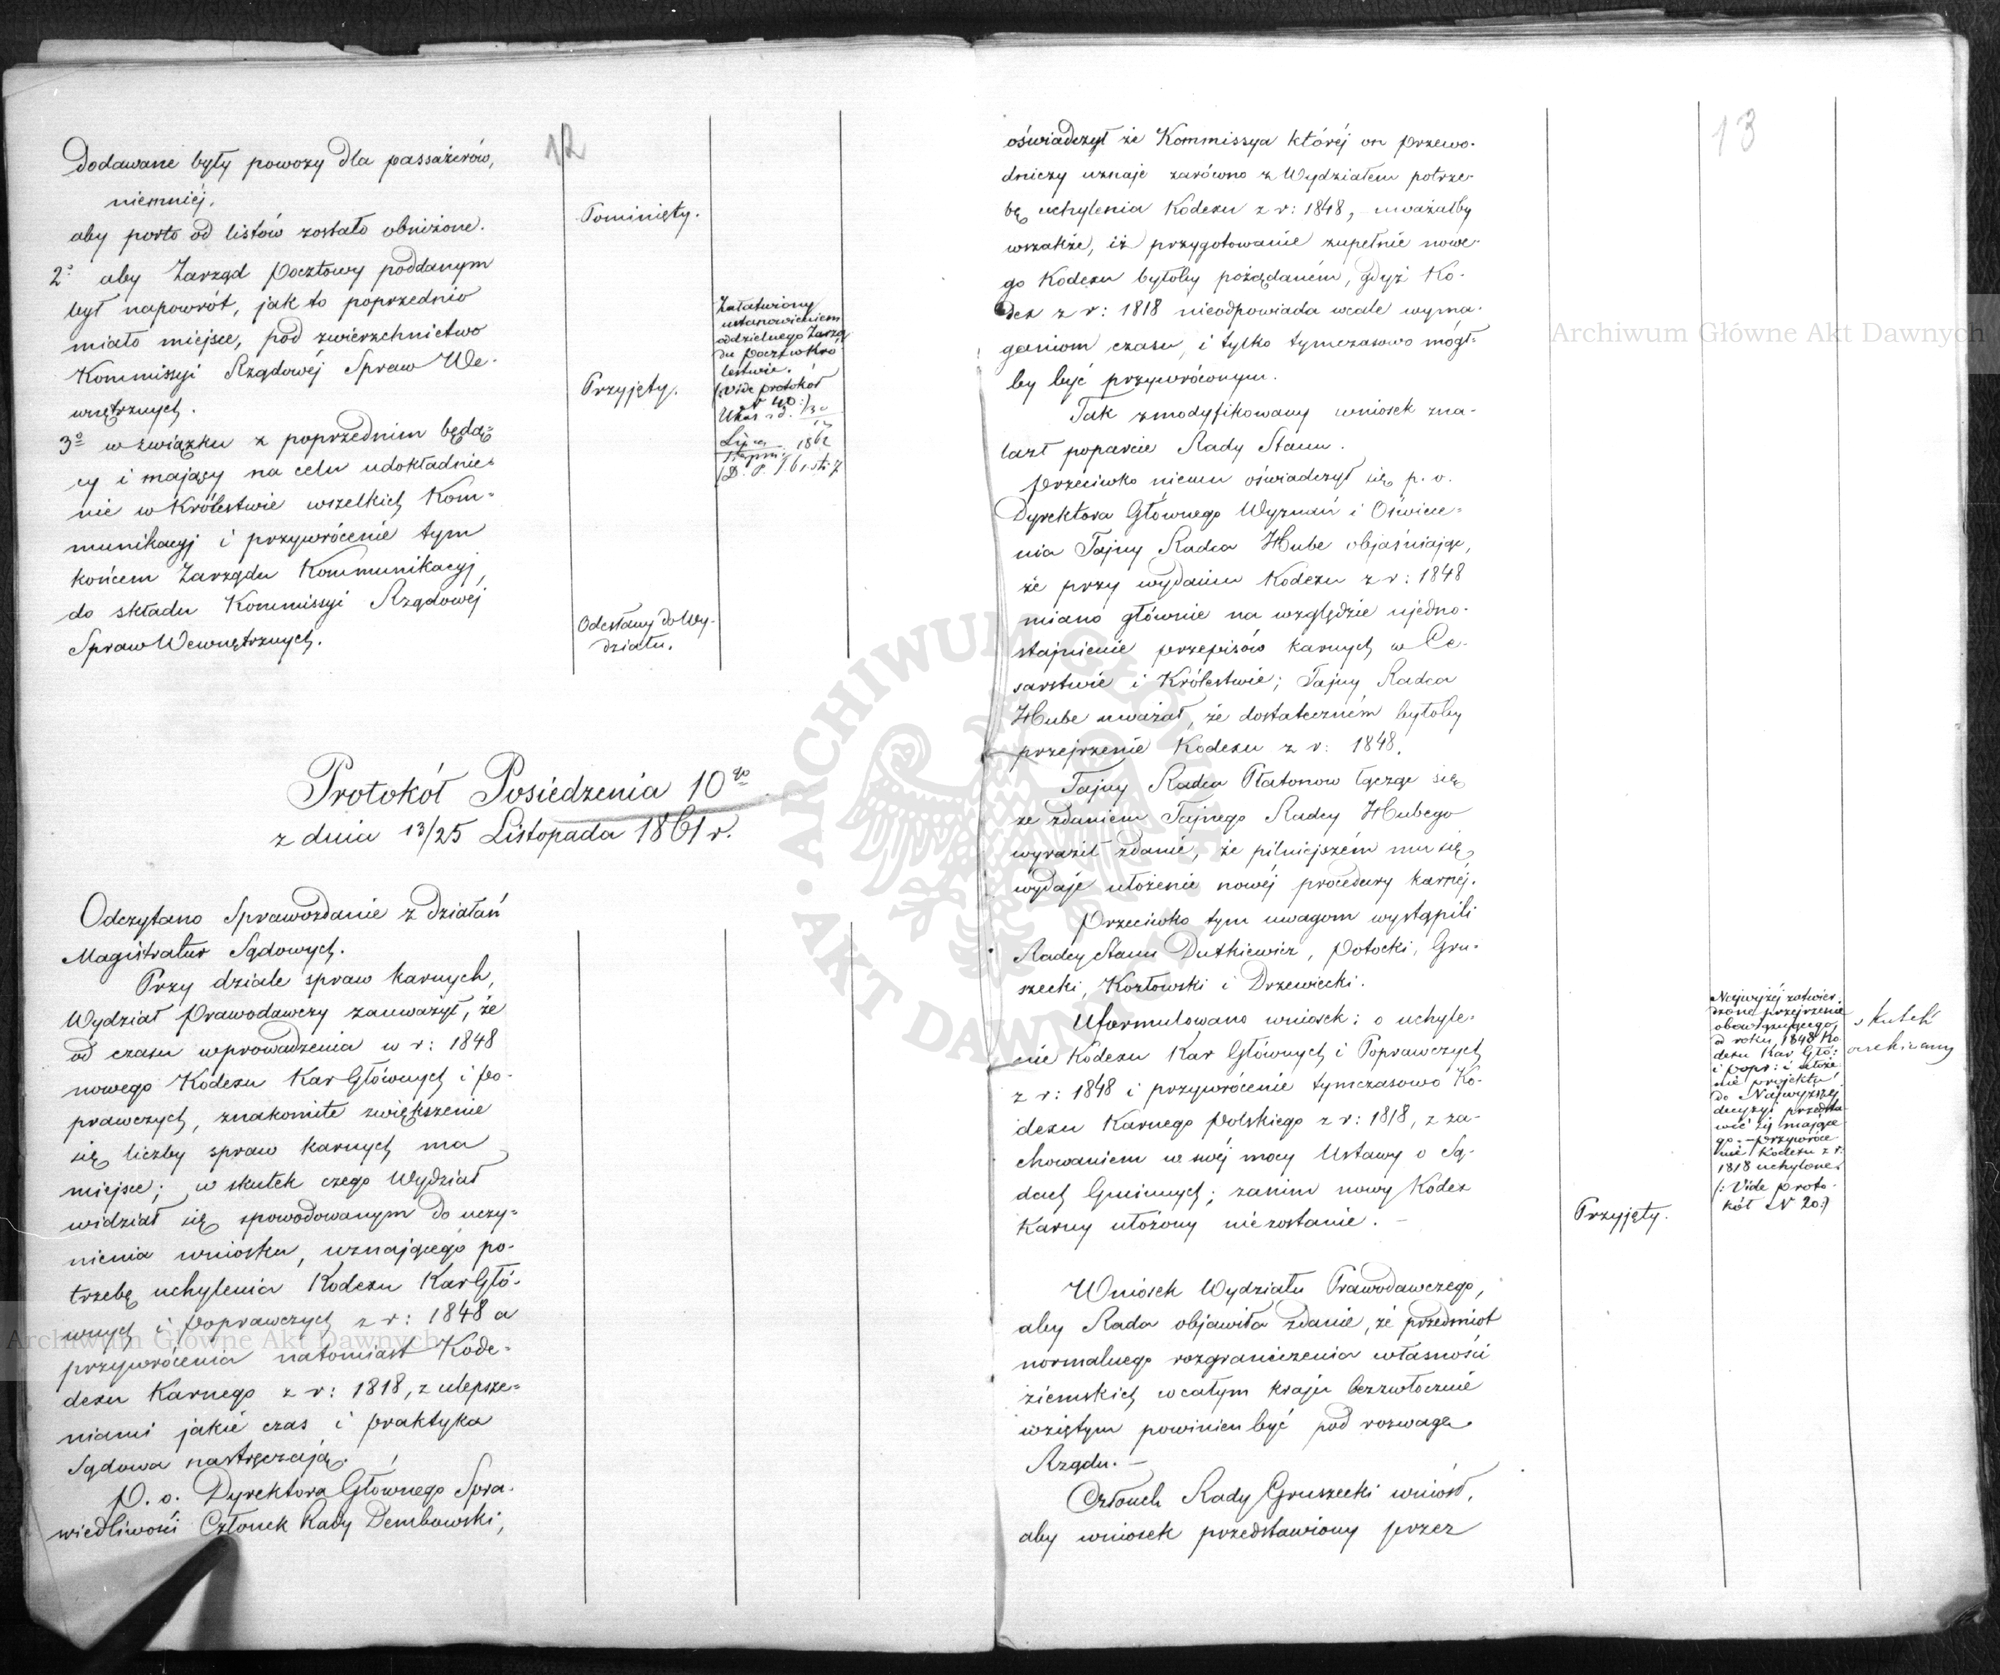 12
dodawane były powozy dla passażerów,
niemniéj.
aby porto od listów zostało obniżone.
Pominięty.
2° aby Zarząd Pocztowy poddanym
był napowrót, jak to poprzednio
miało miejsce, pod zwierzchnictwo
Kommissyi Rządowéj Spraw We-
wnętrznych.
Przyjęty.
Załatwiony
ustanowieniem
oddzielnego Zarzą
du poczt w Kró-
lestwie.
(: Vide protokół
N 40:)
Ukaz
1862
3° w związku z poprzednim będą=
cy i mający na celu udokładnie-
nie w Królestwie wszelkich Kom-
munikacyj i przywrócenie tym
końcem Zarządu Kommunikacyj
do składu Kommissyi Rządowéj
Spraw Wewnętrznych.
Odesłany do Wy-
działu.
Protokół Posiedzenia 10go
z dnia 13/25 Listopada 1861 r.
Odczytano Sprawozdanie z działań
Magistratur Sądowych.
Przy dziale spraw karnych,
Wydział Prawodawczy zauważył, że
od czasu wprowadzenia w r: 1848
nowego Kodexu Kar Głównych i Po-
prawczych, znakomite zwiększenie
się liczby spraw karnych ma
miejsce; w skutek czego Wydział
widział się spowodowanym do uczy-
nienia wniosku, uznającego po-
trzebę uchylenia Kodexu Kar Głó-
wnych i Poprawczych z r: 1848 a
przywrócenia natomiast Kode-
dexu Karnego z r: 1818, z ulepsze=
niami jakie czas i praktyka
Sądowa nastręczają.
P. o. Dyrektora Głównego Spra-
wiedliwości Członek Rady Dembowski,
13
oświadczył że Kommissya któréj on przewo-
dniczy uznaje zarówno z Wydziałem potrze-
bę uchylenia Kodexu z r: 1848, uważałby
wszakże, iż przygotowanie zupełnie nowe-
go Kodexu byłoby pożądaném, gdyż Ko-
dex z r: 1818 nieodpowiada wcale wyma-
ganiom czasu, i tylko tymczasowo mógł-
by być przywróconym.
Tak zmodyfikowany wniosek zna-
lazł poparcie Rady Stanu.
Przeciwko niemu oświadczył się p. o.
Dyrektora Głównego Wyznań i Oświece-
nia Tajny Radca Hube objaśniając,
że przy wydaniu Kodexu z r: 1848
miano głównie na względzie ujedno-
stajnienie przepisów karnych w Ce-
sarstwie i Królestwie; Tajny Radca
Hube uważał, że dostateczném byłoby
przejrzenie Kodexu z r: 1848.
Tajny Radca Płatonow łącząc się
ze zdaniem Tajnego Radcy Hubego
wyraził zdanie, że pilniejszém mu się
wydaje ułożenie nowéj procedury karnéj.
Przeciwko tym uwagom wystąpili
Radcy Stanu Dutkiewicz, Potocki, Gru-
szecki, Kozłowski i Drzewiecki.
Uformułowano wniosek: o uchyle-
nie Kodexu Kar Głównych i Poprawczych
z r: 1848 i przywrócenie tymczasowo Ko-
dexu Karnego Polskiego z r: 1818, z za-
chowaniem w swéj mocy Ustawy o Są-
dach Gminnych; zanim nowy Kodex
Karny ułożony nie zostanie. –
Przyjęty.
Najwyżéj zatwier-
dzone przejrzenie
obowiązującego,
z roku 1848 Ko
dexu Kar Głó:
i Popr: i ułoże
nie projektu
do Najwyższéj
decyzyi przedsta-
wić się mające
go; – przywróce
nie Kodexu z r:
1818 uchylone.
(: Vide proto-
kół N 20:)
skutek
oczekiwany
Wniosek Wydziału Prawodawczego,
aby Rada objawiła zdanie, że przedmiot
normalnego rozgraniczenia własności
ziemskich w całym kraju bezzwłocznie
wziętym powinien być pod rozwagę
Rządu. –
Członek Rady Gruszecki wniósł,
aby wniosek przedstawiony przez
Archiwum Główne Akt Dawnych
Archiwum Główne Akt Dawnych
ARCHIWUM GŁÓWNE AKT DAWNYCH